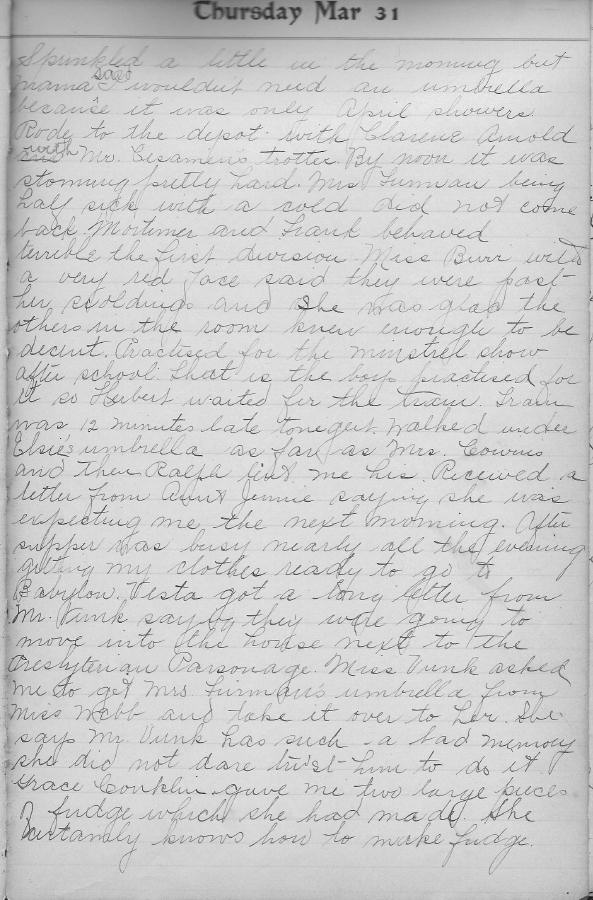 Thursday Mar 31
Sprinkled a little in the morning but
mama said I wouldn't need an umbrella
because it was only April showers.
Rode to the depot with Clarence Arnold
with Mr. trotter. By noon it was
storming pretty hard. Mrs Furman being
half sick with a cold did not come
back. Mortimer and Frank behaved
terrible the first division. Miss Burr with
a very red face said they were past
her scoldings and she was glad the
others in the room knew enough to be
decent. Practised for the minstrel show
after school. That is the boys practised for
it so Hubert waited for the train. Train
was 12 minutes late tonegert. Walked under
Elsie's umbrella as far as Mrs.
and then Ralph lent me his. Received a
letter from Aunt Jennie saying she was
expecting me the next morning. After
supper was busy nearly all the evening
getting my clothes ready to go to
Babylon. Vesta got a long letter from
Mr. Vunk saying they were going to
move into the house next to the
Presbyterian Parsonage. Miss Vunk asked
me to get Mrs. Furman's umbrella from
Miss Webb and take it over to her. She
says Mr. Vunk has such a bad memory
she did not dare trust him to do it
Grace Conklin gave me two large pieces
of fudge which she had made. She
certainly knows how to make fudge.